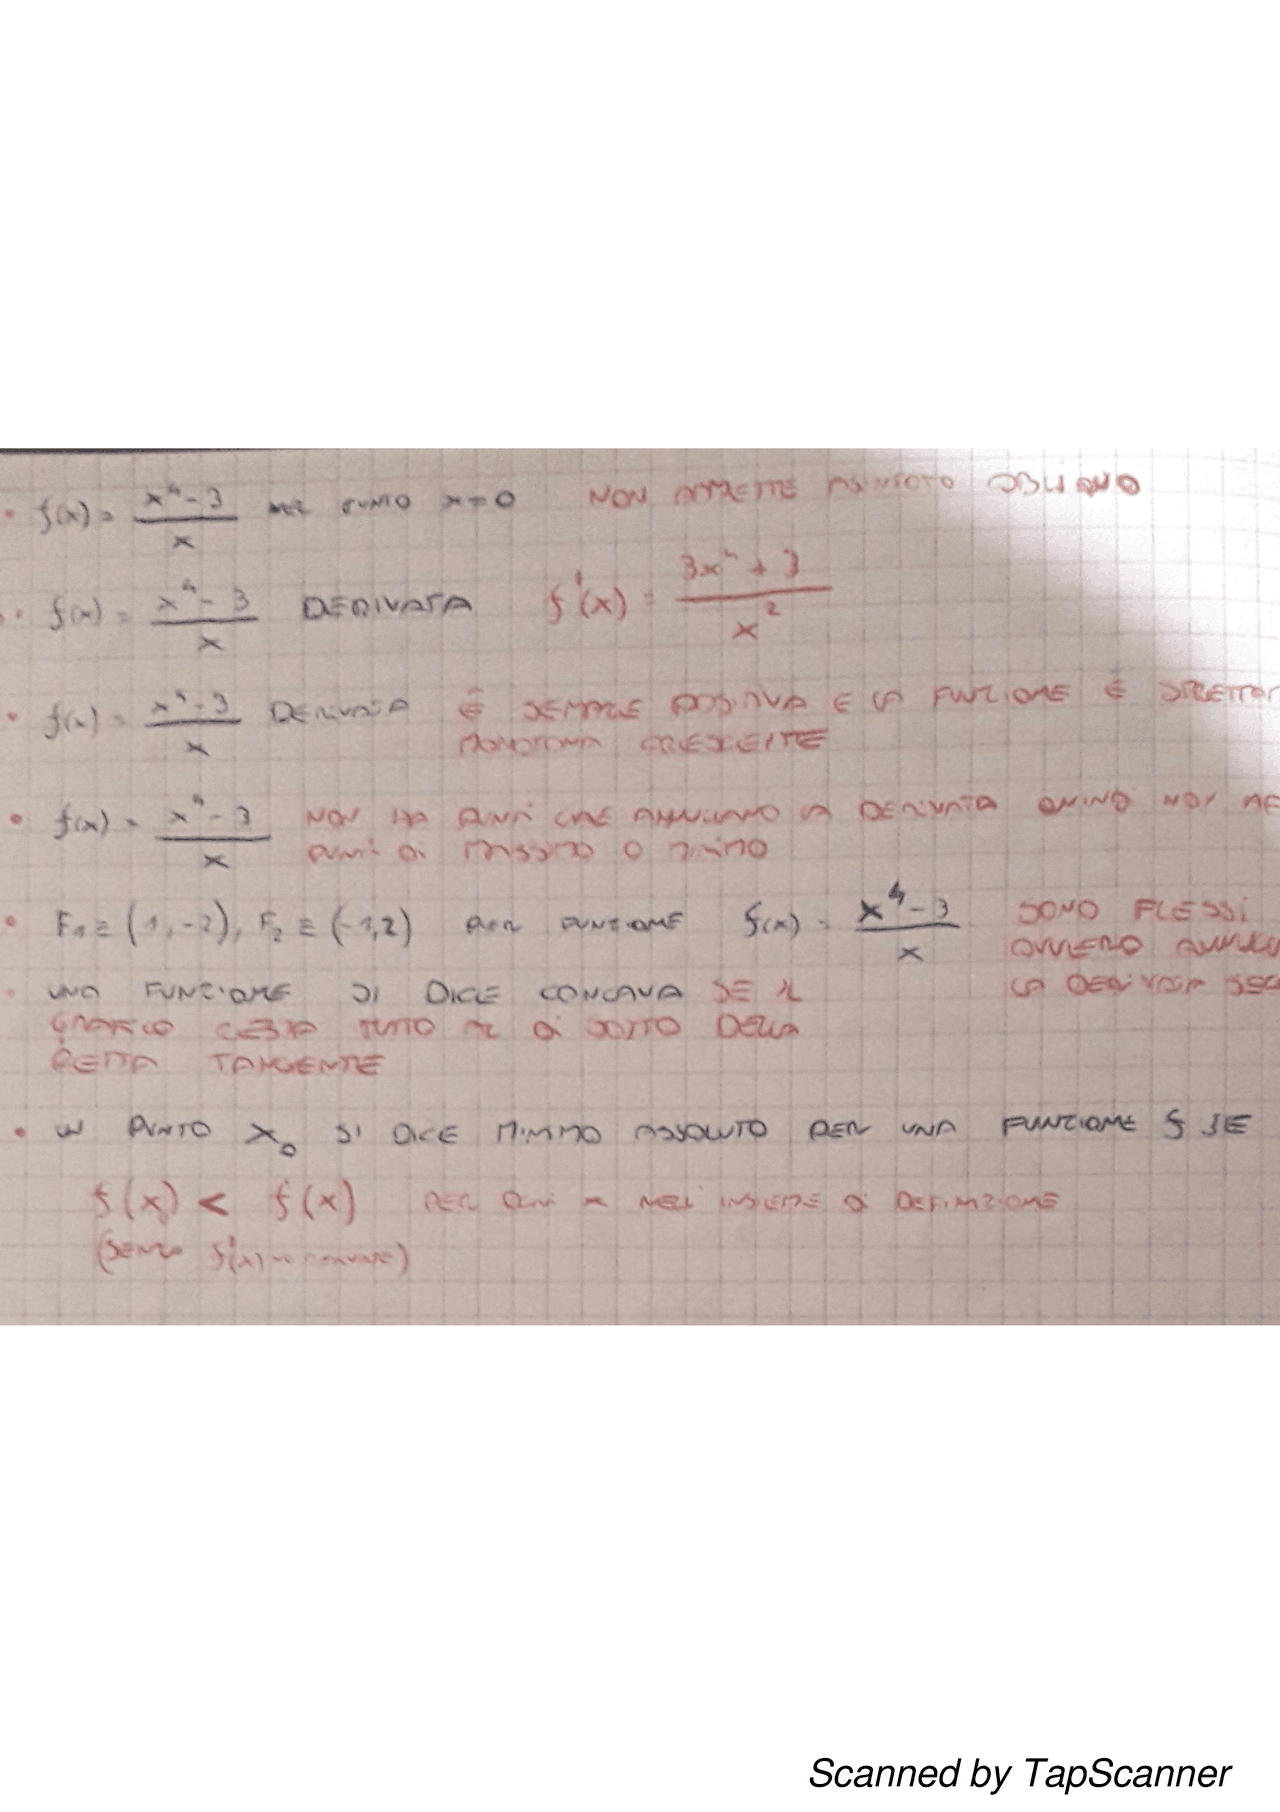 • f(x) = (x⁴ - 3)/x NEL PUNTO x = 0 NON AMMETTE ASINTOTO OBLIQUO
• f(x) = (x⁴ - 3)/x DERIVATA f'(x) = (3x⁴ + 3)/x²
• f(x) = (x⁴ - 3)/x DERIVATA É SEMPRE POSITIVA E LA FUNZIONE É
MONOTONA CRESCENTE
• f(x) = (x⁴ - 3)/x NON HA PUNTI CHE ANNULLANO LA DERIVATA NON
PUNTI DI MASSIMO O MINIMO
• F₁ ≡ (1, -2), F₂ ≡ (-1, 2) PER FUNZIONE f(x) = (x⁴ - 3)/x SONO FLESSI
OVVERO
LA DERIVATA
• UNA FUNZIONE SI DICE CONCAVA SE IL
GRAFICO RESTA TUTTO AL DI SOTTO DELLA
RETTA TANGENTE
• UN PUNTO x₀ SI DICE MINIMO ASSOLUTO PER UNA FUNZIONE f SE
f(x) < f(x) PER OGNI x NELL'INSIEME DI DEFINIZIONE
(SENZA f'(x)
Scanned by TapScanner